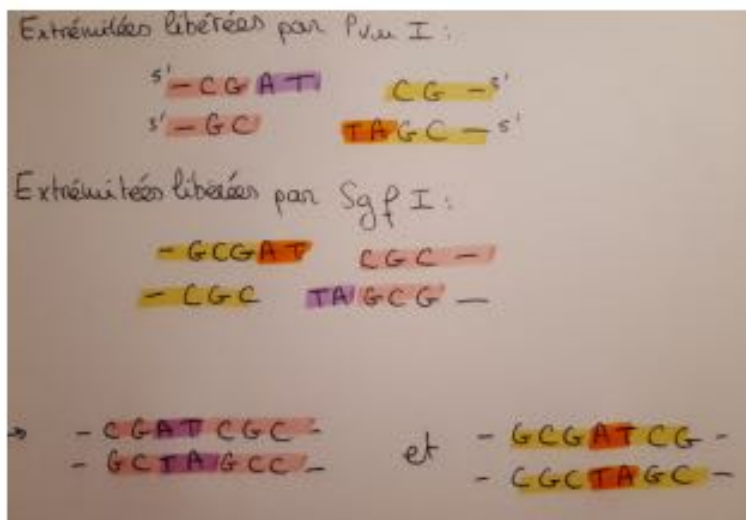 Extrémitées libérées par Pvu I :
5' - CG AT CG - 5'
3' - GC TAGC - 5'
Extrémiteés libérées par Sgf I :
- GCGAT CGC -
- CGC TAGCG -
→ - CGATCGC - et - GCGATCG -
- GCTAGCC - - CGCTAGC -